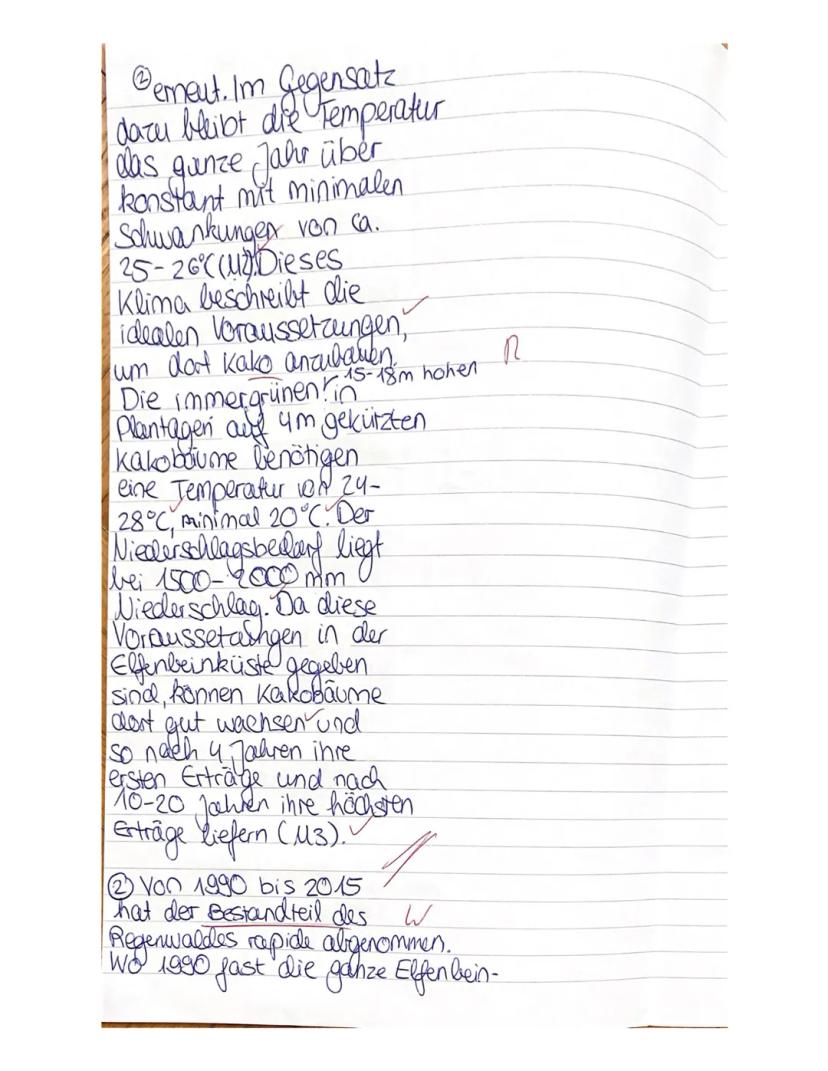 ② erneut. Im Gegensatz
dazu bleibt die Temperatur
das ganze Jahr über
konstant mit minimalen
Schwankungen von ca.
25-26°C (M2). Dieses
Klima beschreibt die
idealen Voraussetzungen,
um dort Kako anzubauen. R
15-18m hohen
Die immergrünen in
Plantagen auf 4m gekürzten
Kakobäume benötigen
eine Temperatur von 24-
28°C, minimal 20°C. Der
Niederschlagsbedarf liegt
bei 1500-2000 mm
Niederschlag. Da diese
Voraussetzungen in der
Elfenbeinküste gegeben
sind, können Kakobäume
dort gut wachsen und
so nach 4 Jahren ihre
ersten Erträge und nach
10-20 Jahren ihre höchsten
Erträge liefern (M3).
② Von 1990 bis 2015
hat der Bestandteil des W
Regenwaldes rapide abgenommen.
Wo 1990 fast die ganze Elfenbein-